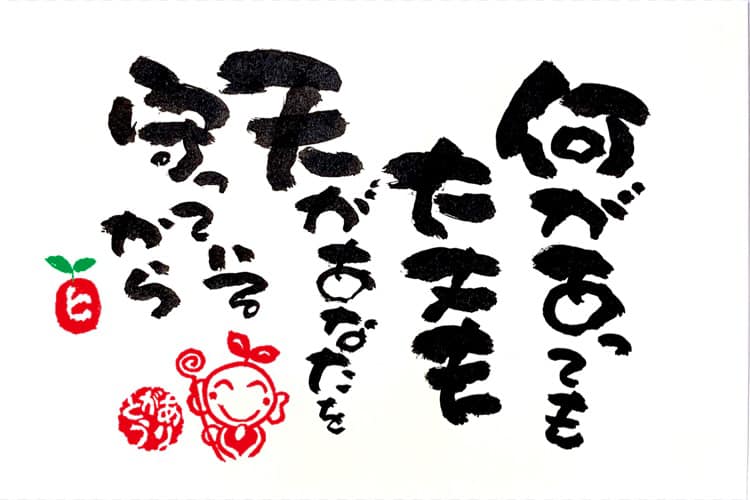 何があっても
大丈夫
天があなたを
守っている
から
ヒ
ありがとう